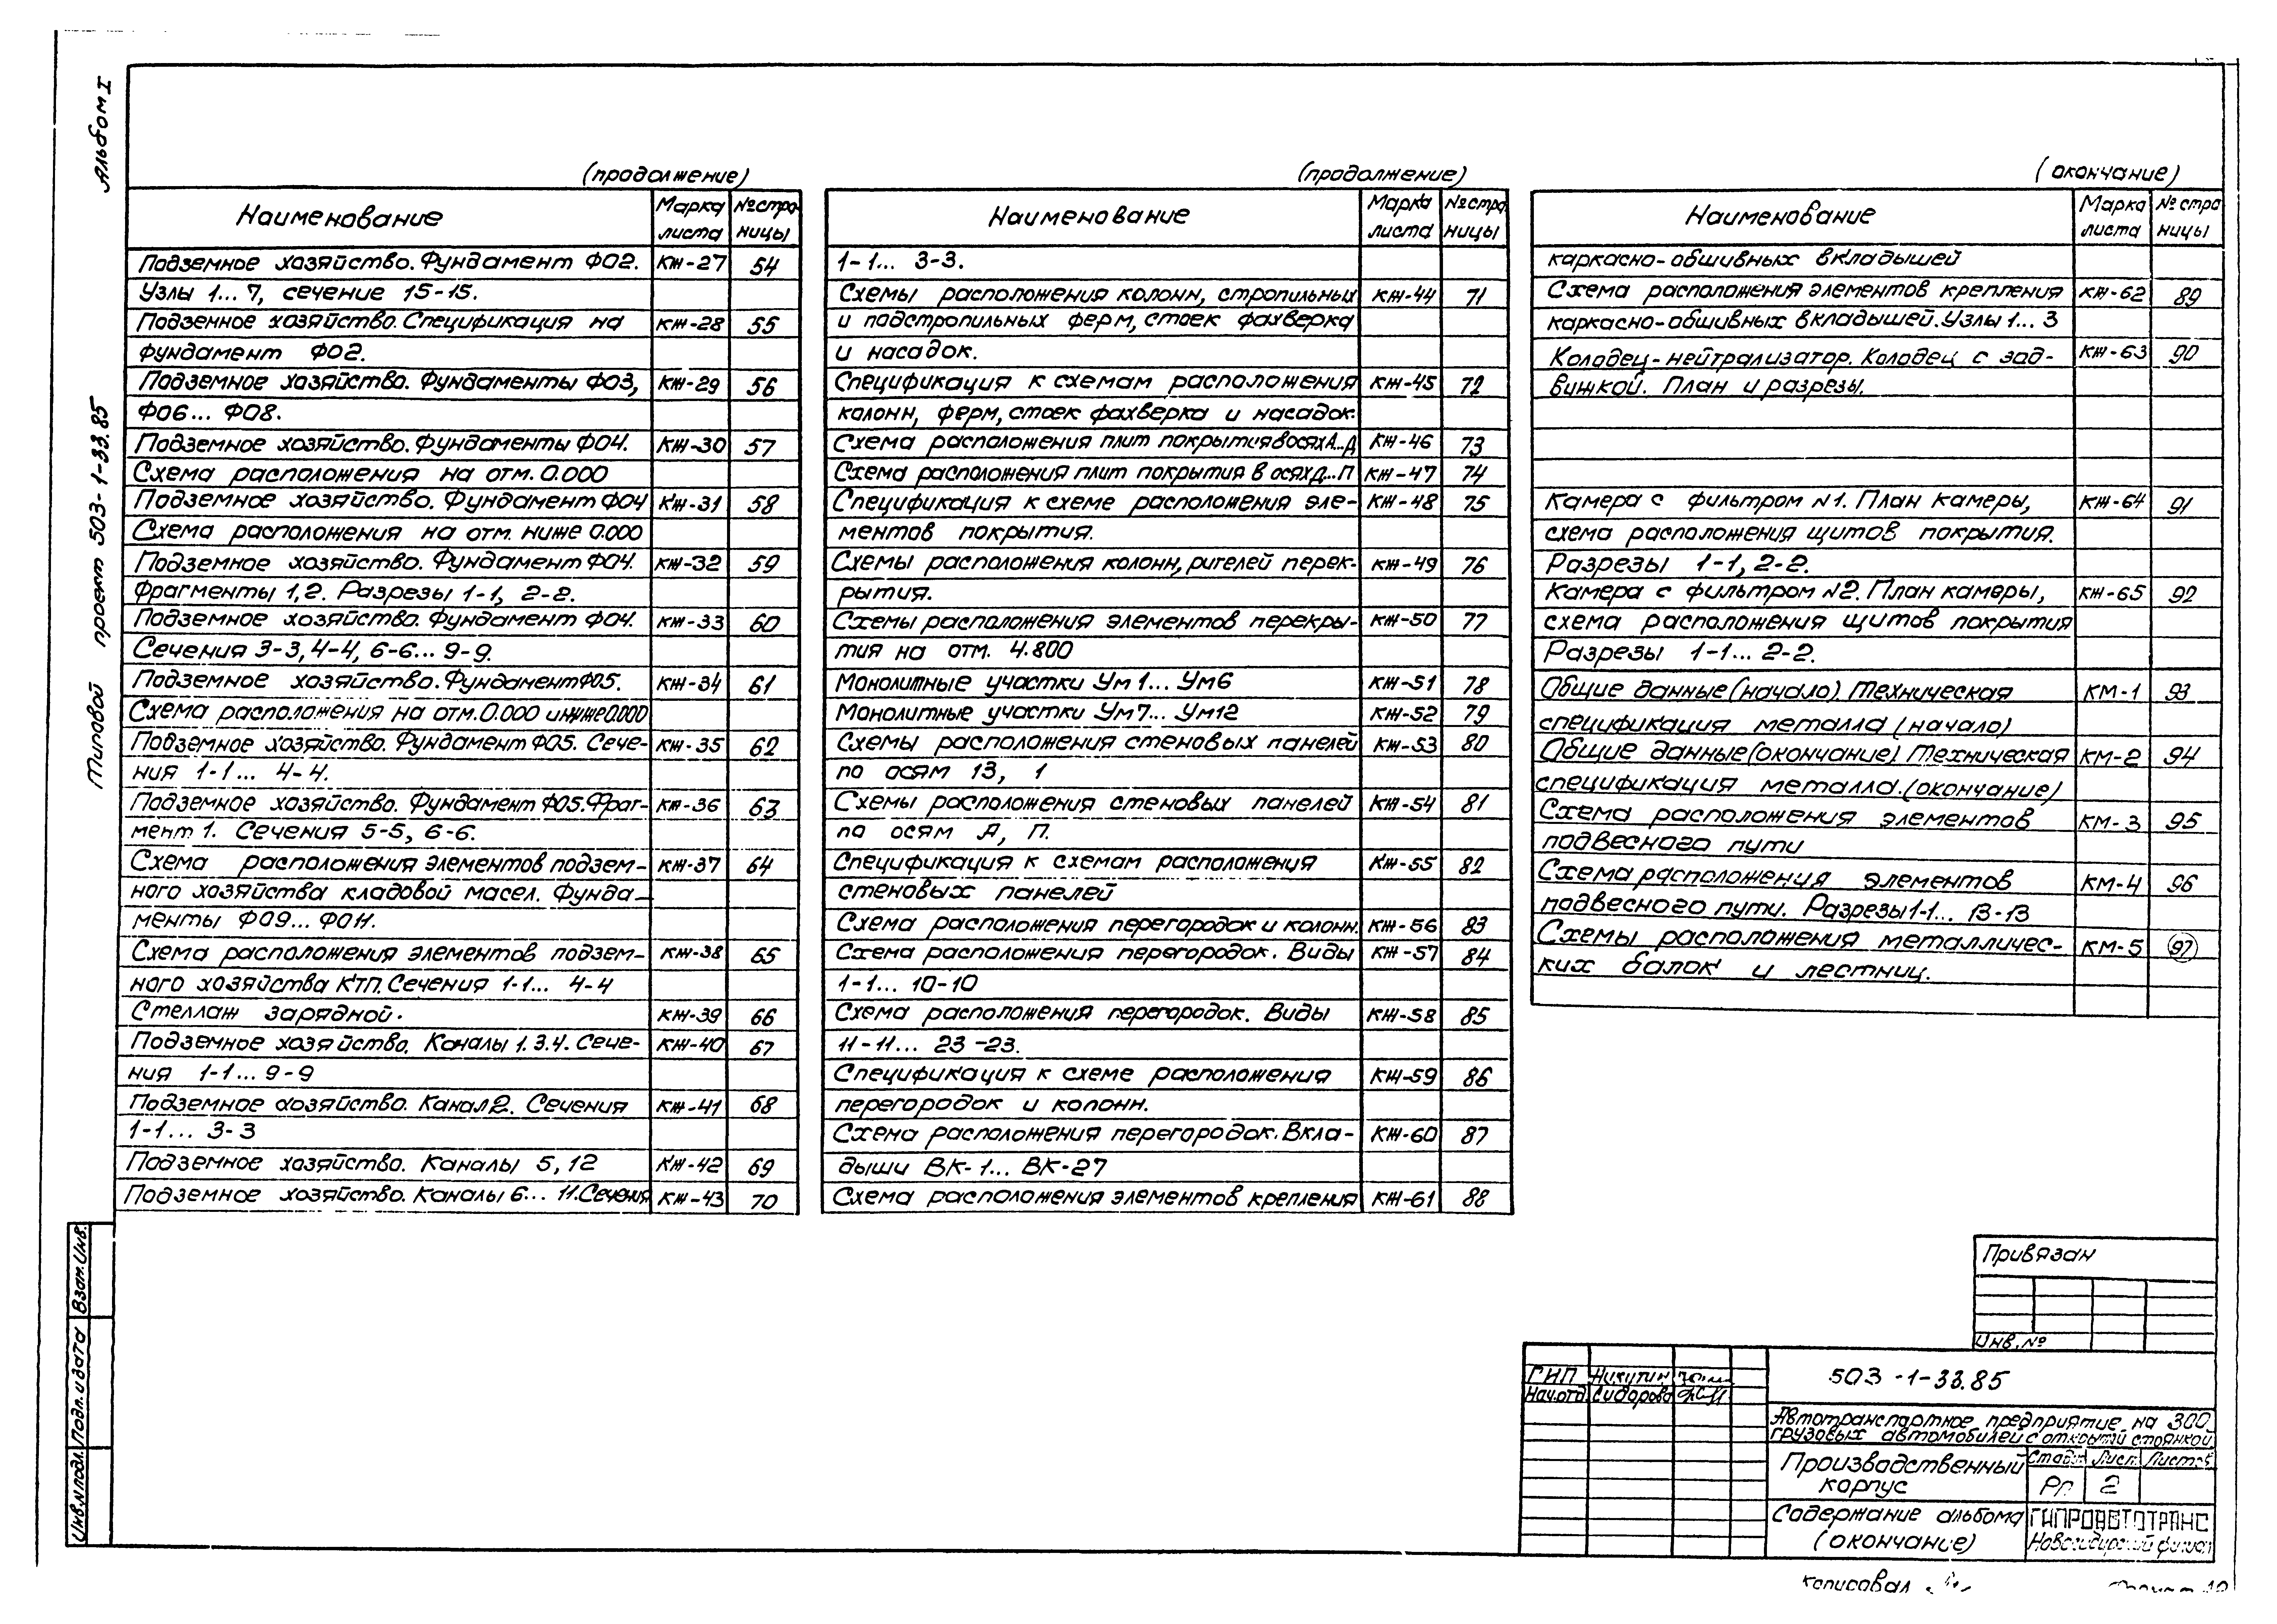 Альбом I
Типовой проект 503-1-33.85
(продолжение)
Наименование Марка листа №стра ницы
Подземное хозяйство. Фундамент Ф02. КЖ-27 54
Узлы 1...7, сечение 15-15.
Подземное хозяйство. Спецификация на КЖ-28 55
фундамент Ф02.
Подземное хозяйство. Фундаменты Ф03, КЖ-29 56
Ф06... Ф08.
Подземное хозяйство. Фундаменты Ф04. КЖ-30 57
Схема расположения на отм. 0.000
Подземное хозяйство. Фундамент Ф04 КЖ-31 58
Схема расположения на отм. ниже 0.000
Подземное хозяйство. Фундамент Ф04. КЖ-32 59
Фрагменты 1,2. Разрезы 1-1, 2-2.
Подземное хозяйство. Фундамент Ф04. КЖ-33 60
Сечения 3-3, 4-4, 6-6... 9-9.
Подземное хозяйство. Фундамент Ф05. КЖ-34 61
Схема расположения на отм. 0.000 и ниже 0.000
Подземное хозяйство. Фундамент Ф05. Сече- КЖ-35 62
ния 1-1... 4-4.
Подземное хозяйство. Фундамент Ф05. Фраг- КЖ-36 63
мент 1. Сечения 5-5, 6-6.
Схема расположения элементов подзем- КЖ-37 64
ного хозяйства кладовой масел. Фунда-
менты Ф09... Ф011.
Схема расположения элементов подзем- КЖ-38 65
ного хозяйства КТП. Сечения 1-1... 4-4
Стеллаж зарядной. КЖ-39 66
Подземное хозяйство. Каналы 1.3.4. Сече- КЖ-40 67
ния 1-1... 9-9
Подземное хозяйство. Канал 2. Сечения КЖ-41 68
1-1... 3-3
Подземное хозяйство. Каналы 5, 12 КЖ-42 69
Подземное хозяйство. Каналы 6... 11. Сечения КЖ-43 70
(продолжение)
Наименование Марка листа №стра ницы
1-1... 3-3.
Схемы расположения колонн, стропильных КЖ-44 71
и подстропильных ферм, стоек фахверка
и насадок.
Спецификация к схемам расположения КЖ-45 72
колонн, ферм, стоек фахверка и насадок.
Схема расположения плит покрытия в осях А...Д КЖ-46 73
Схема расположения плит покрытия в осях Д...П КЖ-47 74
Спецификация к схеме расположения эле- КЖ-48 75
ментов покрытия.
Схемы расположения колонн, ригелей перек- КЖ-49 76
рытия.
Схемы расположения элементов перекры- КЖ-50 77
тия на отм. 4.800
Монолитные участки Ум1... Ум6 КЖ-51 78
Монолитные участки Ум7... Ум12 КЖ-52 79
Схемы расположения стеновых панелей КЖ-53 80
по осям 13, 1
Схемы расположения стеновых панелей КЖ-54 81
по осям А, П.
Спецификация к схемам расположения КЖ-55 82
стеновых панелей
Схема расположения перегородок и колонн. КЖ-56 83
Схема расположения перегородок. Виды КЖ-57 84
1-1... 10-10
Схема расположения перегородок. Виды КЖ-58 85
11-11... 23-23.
Спецификация к схеме расположения КЖ-59 86
перегородок и колонн.
Схема расположения перегородок. Вкла- КЖ-60 87
дыши ВК-1... ВК-27
Схема расположения элементов крепления КЖ-61 88
(окончание)
Наименование Марка листа №стра ницы
каркасно-обшивных вкладышей
Схема расположения элементов крепления КЖ-62 89
каркасно-обшивных вкладышей. Узлы 1... 3
Колодец-нейтрализатор. Колодец с зад- КЖ-63 90
вижкой. План и разрезы.
Камера с фильтром №1. План камеры, КЖ-64 91
схема расположения щитов покрытия.
Разрезы 1-1, 2-2.
Камера с фильтром №2. План камеры, КЖ-65 92
схема расположения щитов покрытия
Разрезы 1-1... 2-2.
Общие данные (начало). Техническая КМ-1 93
спецификация металла (начало)
Общие данные (окончание) Техническая КМ-2 94
спецификация металла. (окончание)
Схема расположения элементов КМ-3 95
подвесного пути
Схема расположения элементов КМ-4 96
подвесного пути. Разрезы 1-1... 13-13
Схемы расположения металличес- КМ-5 97
ких балок и лестниц.
Привязан
Инв. №
ГИП Никутин
Нач.отд. Сидорова
503-1-33.85
Автотранспортное предприятие на 300
грузовых автомобилей с открытой стоянкой
Производственный
корпус
Стадия Лист Листов
РП 2
Содержание альбома
(окончание)
ГИПРОАВТОТРАНС
Новосибирский филиал
Копировал
Инв.№подл. Подп. и дата Взам. Инв.